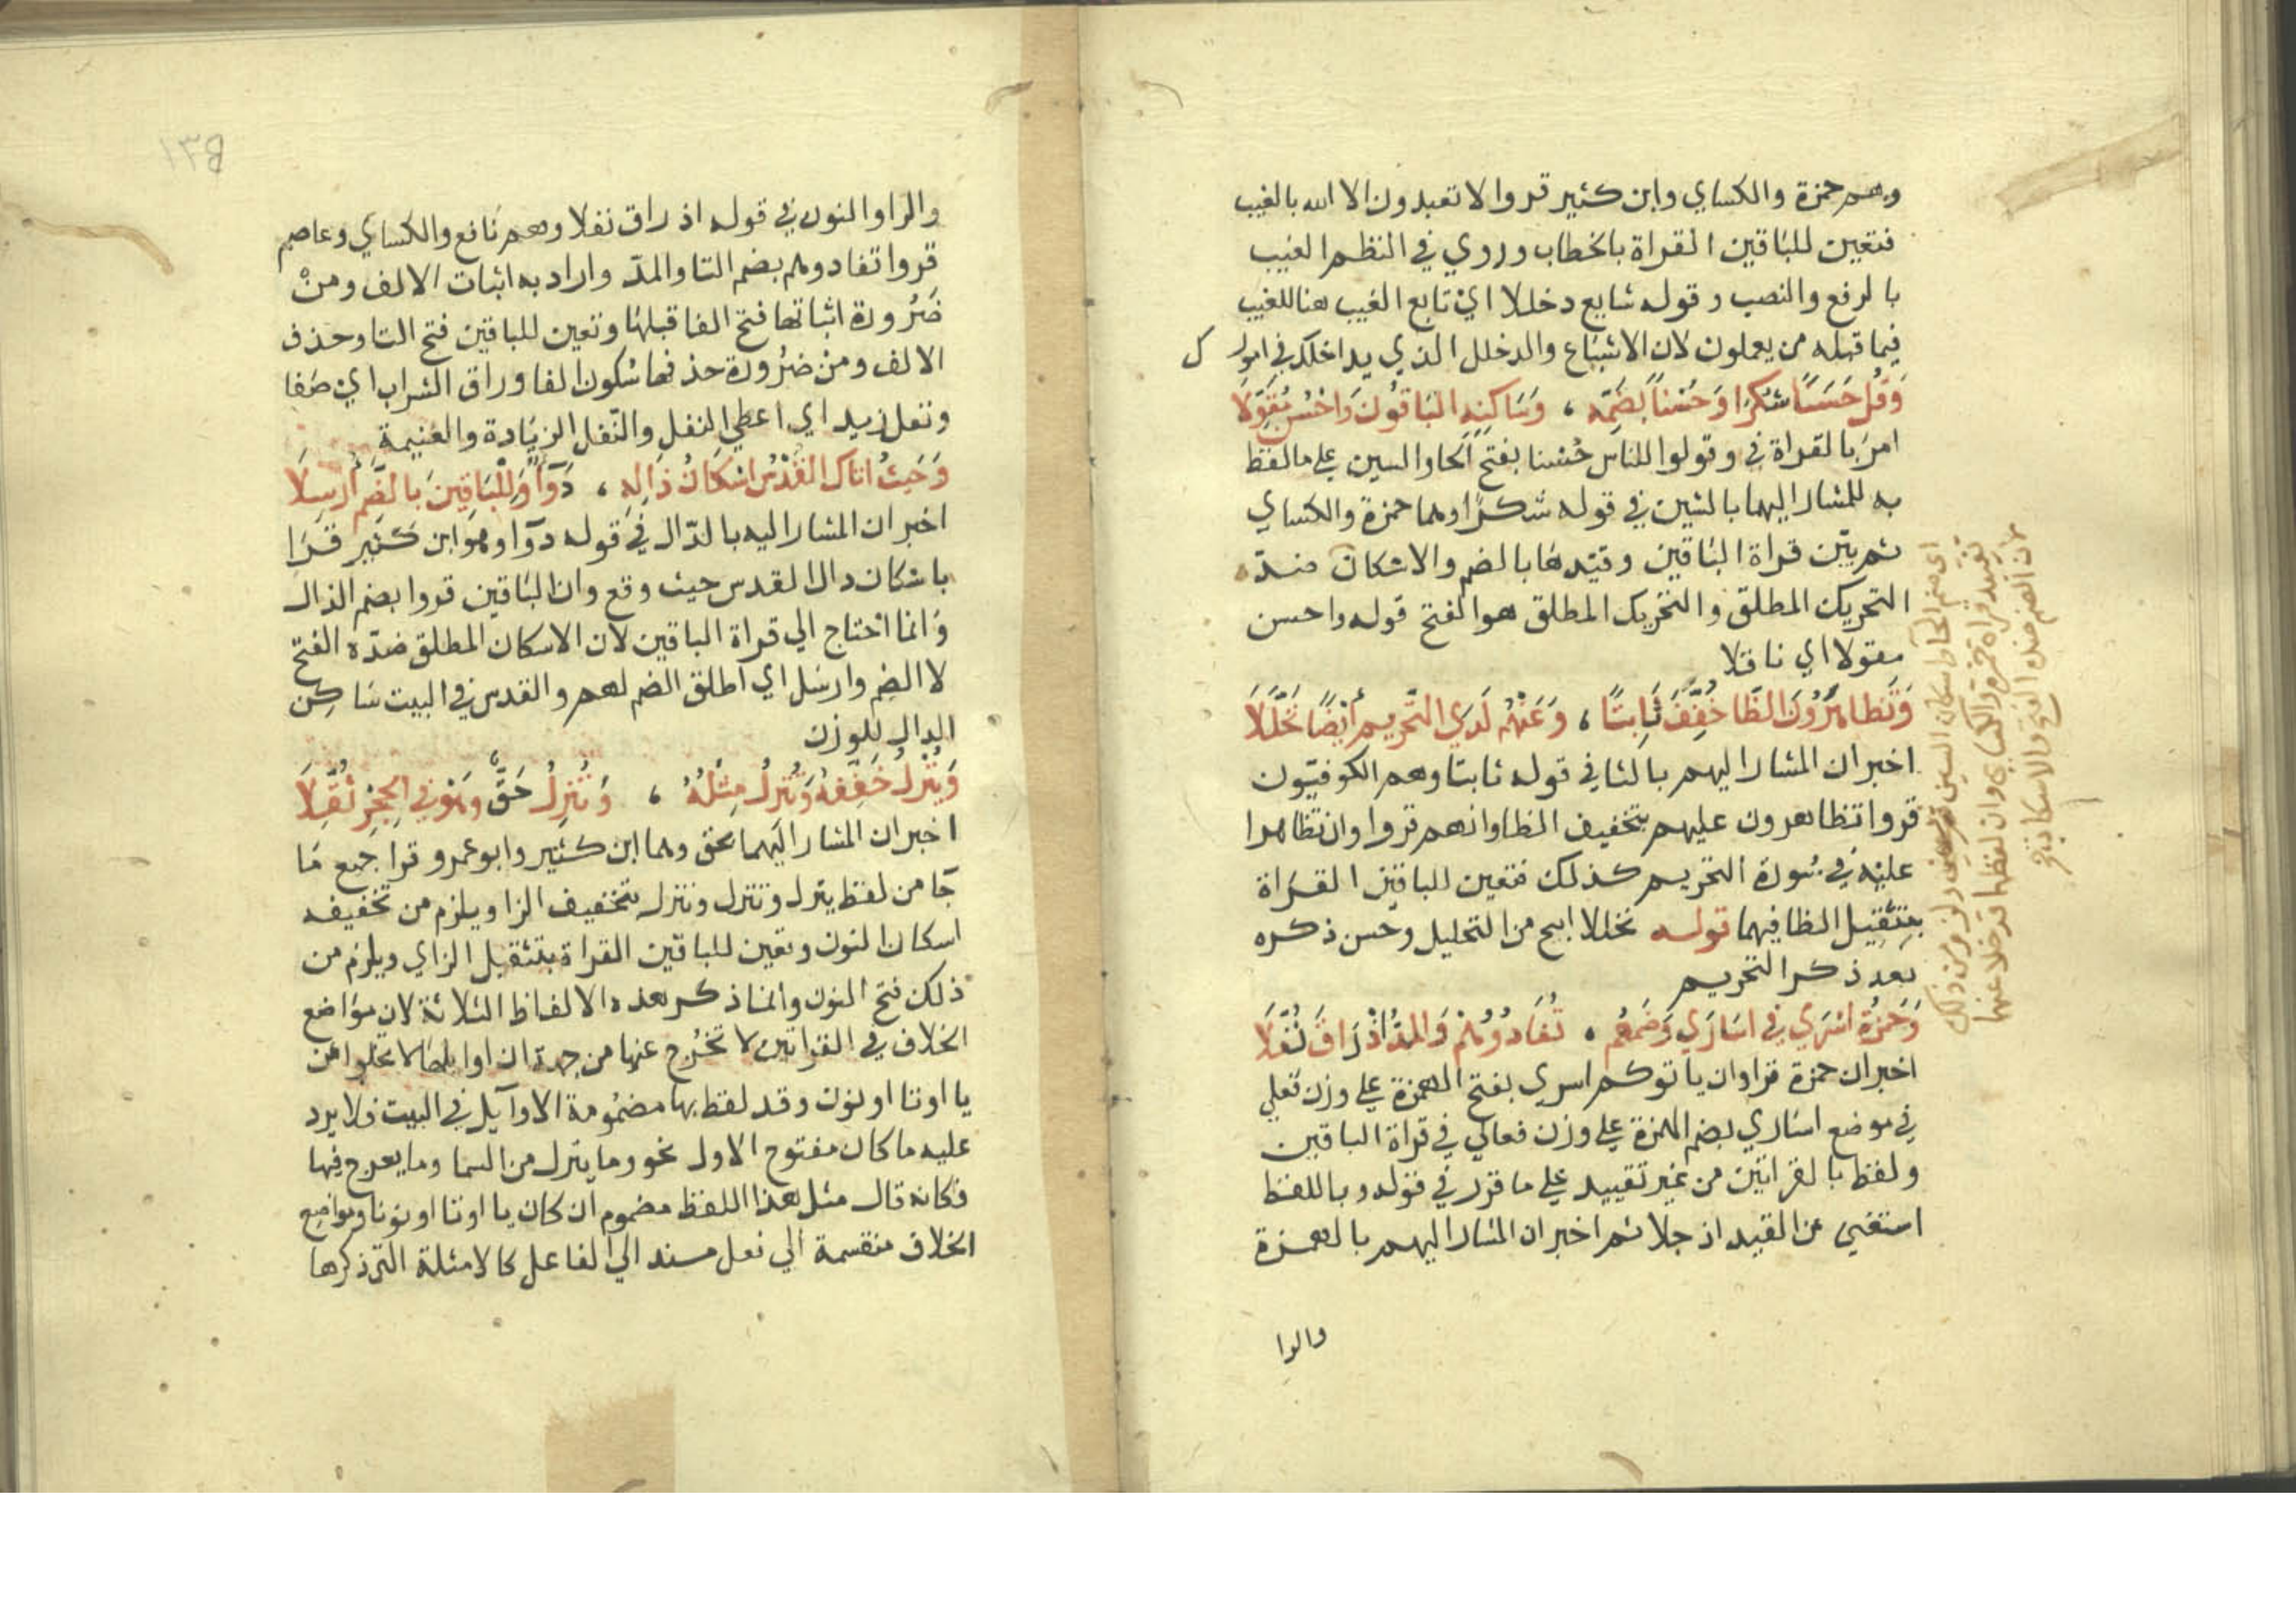 وهم حمزة والكساي وابن كثير قروا لا تعبدون الا الله بالغيب
فتعين للباقين القراة بالخطاب وروي في النظم الغيب
بالرفع والنصب وقوله شايع دخللا اي تابع الغيب هنا للغيب
فيما قبله من يعملون لان الاشباع والدخلل الذي يداخلك في امور ك
وَقُل حَسَنًا شكرًا وَحُسْناً بضَمِّه ، وَسَاكنِهِ البَاقُونَ وَاحْسُن مُقَوِّلَا
امر بالقراة في وقولوا للناس حُسنا بفتح الحا والسين علي ما لفظ
به للمشار اليهما بالشين في قوله شكرًا وهما حمزة والكساي
ثم بيّن قراة الباقين وقيّدها بالضم والاسكان ضدّه
التحريك المطلق والتحريك المطلق هو الفتح قوله واحسن
مقولا اي ناقلا
وَتَظاهَرُونَ الظَّا خُفِّفَ ثَابِتًا ، وَعَنْهُم لَدَي التَّحريم أيضًا تَحَلَّلَا
اخبر ان المشار اليهم بالثا في قوله ثابتا وهم الكوفيّون
قروا تظاهرون عليهم بتخفيف الظا وانهم قروا وان تظاهرا
عليه في سورة التحريم كذلك فتعين للباقين القراة
بتثقيل الظا فيهما قوله تحللا ابيح من التحليل وحسن ذكره
بعد ذكر التحريم
وَحَمزَةُ اسْرَي في اسَارَي وَضَمُّهم ، تُفَادُوهُمْ وَالمَدُّ اذْ رَاقَ نُفِّلَا
اخبر ان حمزة قرا وان ياتوكم اسري بفتح الهمزة علي وزن فعلي
في موضع اساري بضم الهمزة علي وزن فعالي في قراة الباقين
ولفظ بالقراتين من غير تقييد علي ما قرر في قوله وباللفظ
استغني عن القيد اذ جلا ثم اخبر ان المشار اليهم بالهمزة
والرا
اي ضم الحا واسكان السين
تقييد قراة حمزة والكساي وان لفظ بها
لان الضم ضده الفتح والاسكان
١٣٥
والرا والنون في قوله اذ راق نفلا وهم نافع والكساي وعاصم
قروا تفادوهم بضم التا والمدّ واراد به اثبات الالف ومن
ضرورة اثباتها فتح الفا قبلها وتعين للباقين فتح التا وحذف
الالف ومن ضرورة حذفها سكون الفا وراق الشراب اي صفا
ونفل زيد اي اعطي النفل والنّفل الزيادة والغنيمة
وَحَيثُ اتاك القُدْسُ اسْكَانُ دَالِه ، دَوَآءٌ وَلِلْبَاقِينَ بالضَّم أُرسِلَا
اخبر ان المشار اليه بالدّال في قوله دوآء وهو ابن كثير قرا
باسكان دال القدس حيث وقع وان الباقين قروا بضم الدال
وانما احتاج الي قراة الباقين لان الاسكان المطلق ضدّه الفتح
لا الضم وارسل اي اطلق الضم لهم والقدس في البيت ساكن
الدال للوزن
وَيُنْزِلُ خَفِّفهُ وَتُنْزِلُ مِثْلُهُ ، وَنُنْزِلُ حَقٌّ وهْوَ في الحِجْرِ ثُقِّلَا
اخبر ان المشار اليهما بحق وهما ابن كثير وابو عمرو قرا جميع ما
جا من لفظ ينزل وتنزل وننزل بتخفيف الزا ويلزم من تخفيفه
اسكان النون وتعين للباقين القراة بتثقيل الزاي ويلزم من
ذلك فتح النون وانما ذكر هذه الالفاظ الثلاثة لان مواضع
الخلاف في القراتين لا تخرج عنها من جهة ان اوايلها لا تخلوا من
يا او تا او نون وقد لفظ بها مضمومة الاوآيل في البيت فلا يرد
عليه ما كان مفتوح الاول نحو وما ينزل من السما وما يعرج فيها
فكانه قال مثل هذا اللفظ مضموم ان كان يا او تا او نونا ومواضع
الخلاف منقسمة الي فعل مسند الي الفاعل كالامثلة التي ذكرها